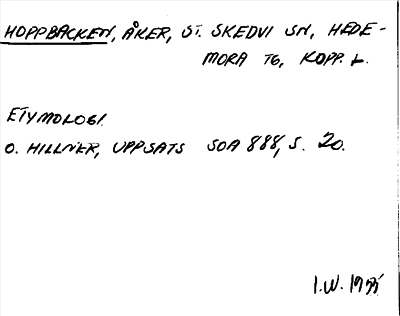 HOPPBACKEN, ÅKER, ST. SKEDVI SN, HEDE-
MORA TG, KOPP. L.
ETYMOLOGI.
O. HILLNER, UPPSATS SOA 888, S. 20.
I.W. 1955